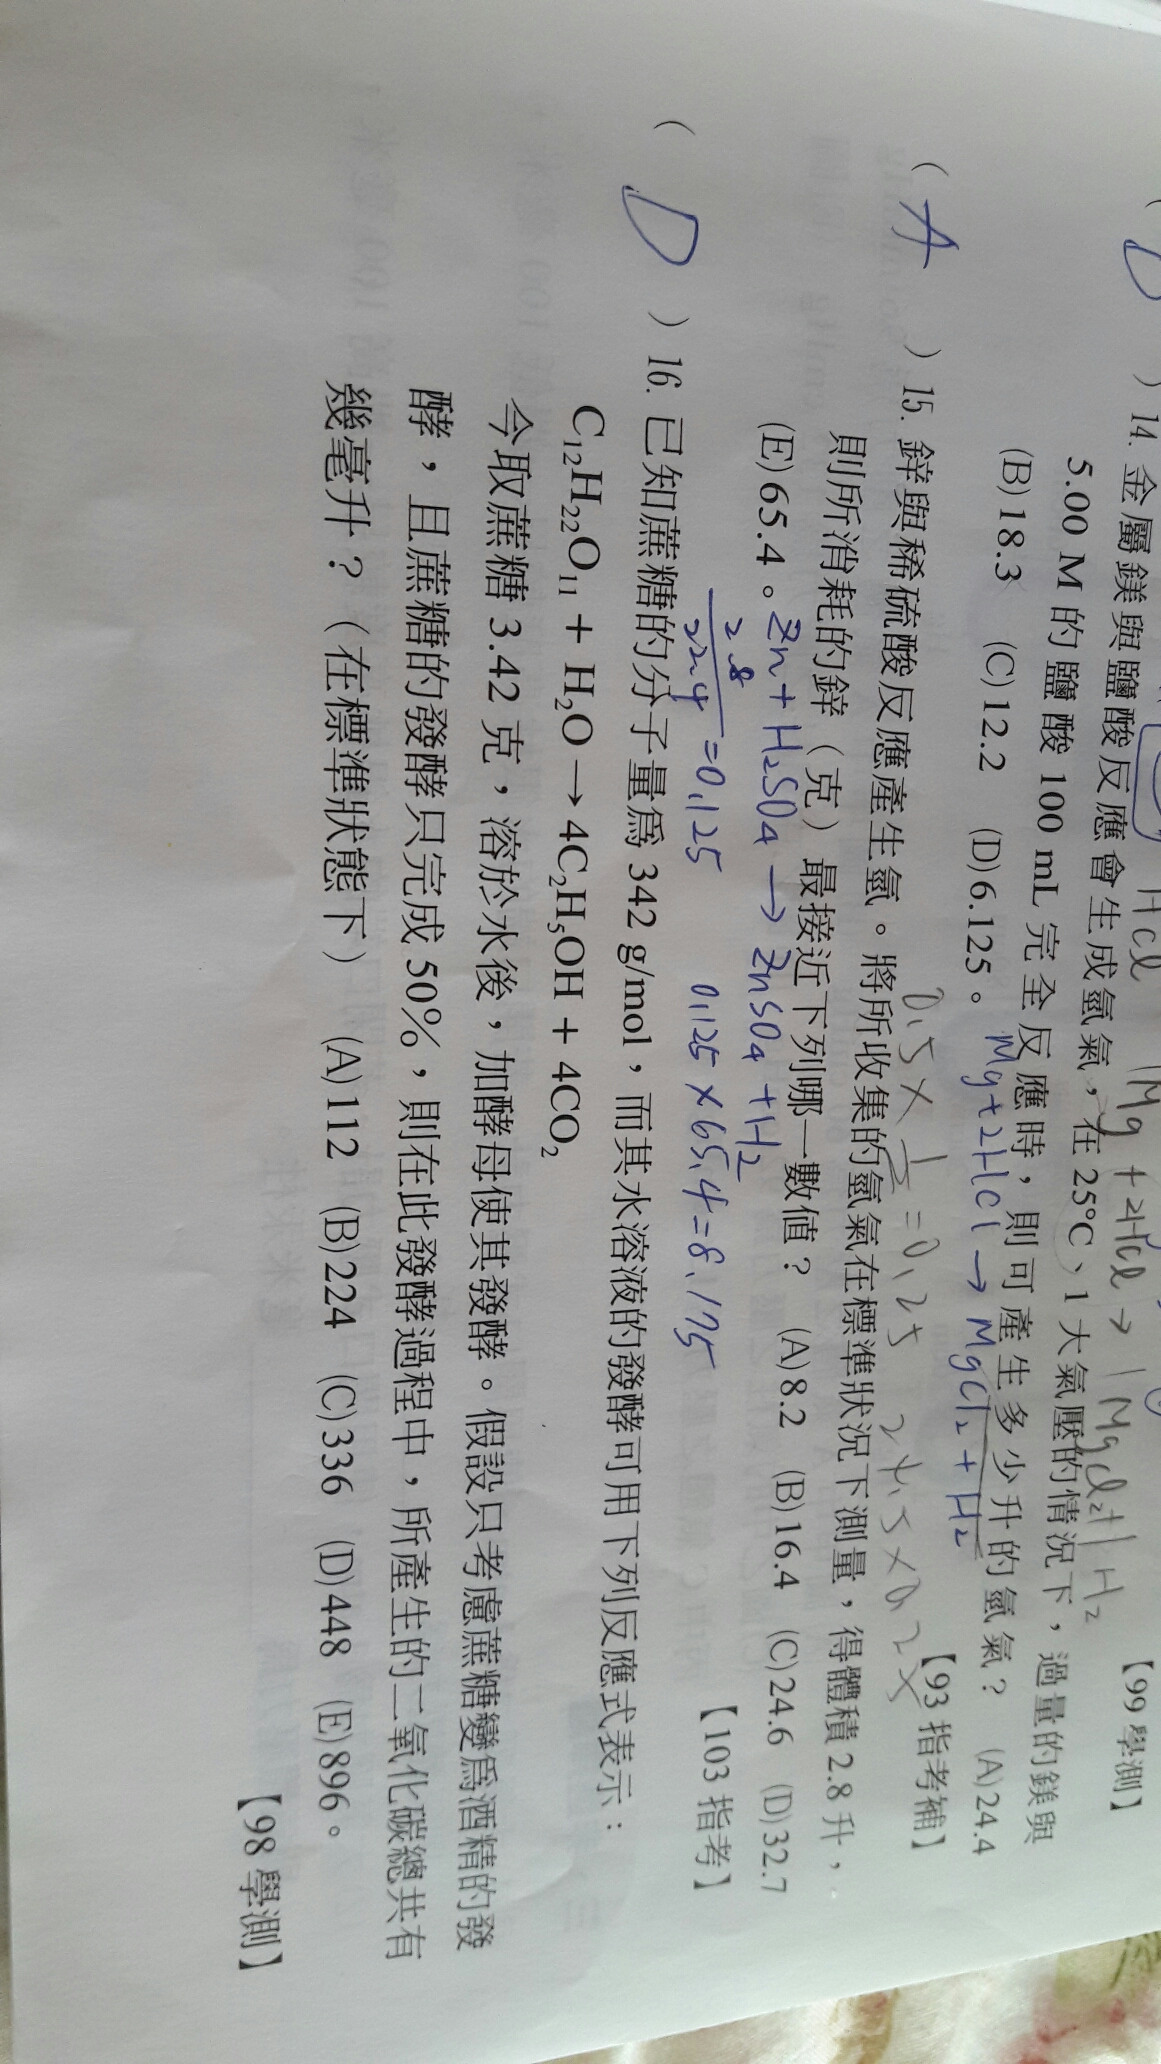 HCl  1Mg + 2HCl → 1MgCl₂+1H₂ 【99 學測】
( D ) 14. 金屬鎂與鹽酸反應會生成氫氣，在 25°C、1 大氣壓的情況下，過量的鎂與
5.00 M 的鹽酸 100 mL 完全反應時，則可產生多少升的氫氣？ (A)24.4
(B)18.3 (C)12.2 (D)6.125。 Mg+2HCl → MgCl₂+H₂ 【93 指考補】
0.5 × 1/2 = 0.25 24.5×0.25
( A ) 15. 鋅與稀硫酸反應產生氫。將所收集的氫氣在標準狀況下測量，得體積 2.8 升，
則所消耗的鋅（克）最接近下列哪一數值？ (A)8.2 (B)16.4 (C)24.6 (D)32.7
(E)65.4。 Zn + H₂SO₄ → ZnSO₄ + H₂ 【103 指考】
2.8/22.4 = 0.125 0.125 × 65.4 = 8.175
( D ) 16. 已知蔗糖的分子量為 342 g/mol，而其水溶液的發酵可用下列反應式表示：
C₁₂H₂₂O₁₁ + H₂O → 4C₂H₅OH + 4CO₂
今取蔗糖 3.42 克，溶於水後，加酵母使其發酵。假設只考慮蔗糖變為酒精的發
酵，且蔗糖的發酵只完成 50%，則在此發酵過程中，所產生的二氧化碳總共有
幾毫升？（在標準狀態下） (A)112 (B)224 (C)336 (D)448 (E)896。
【98 學測】